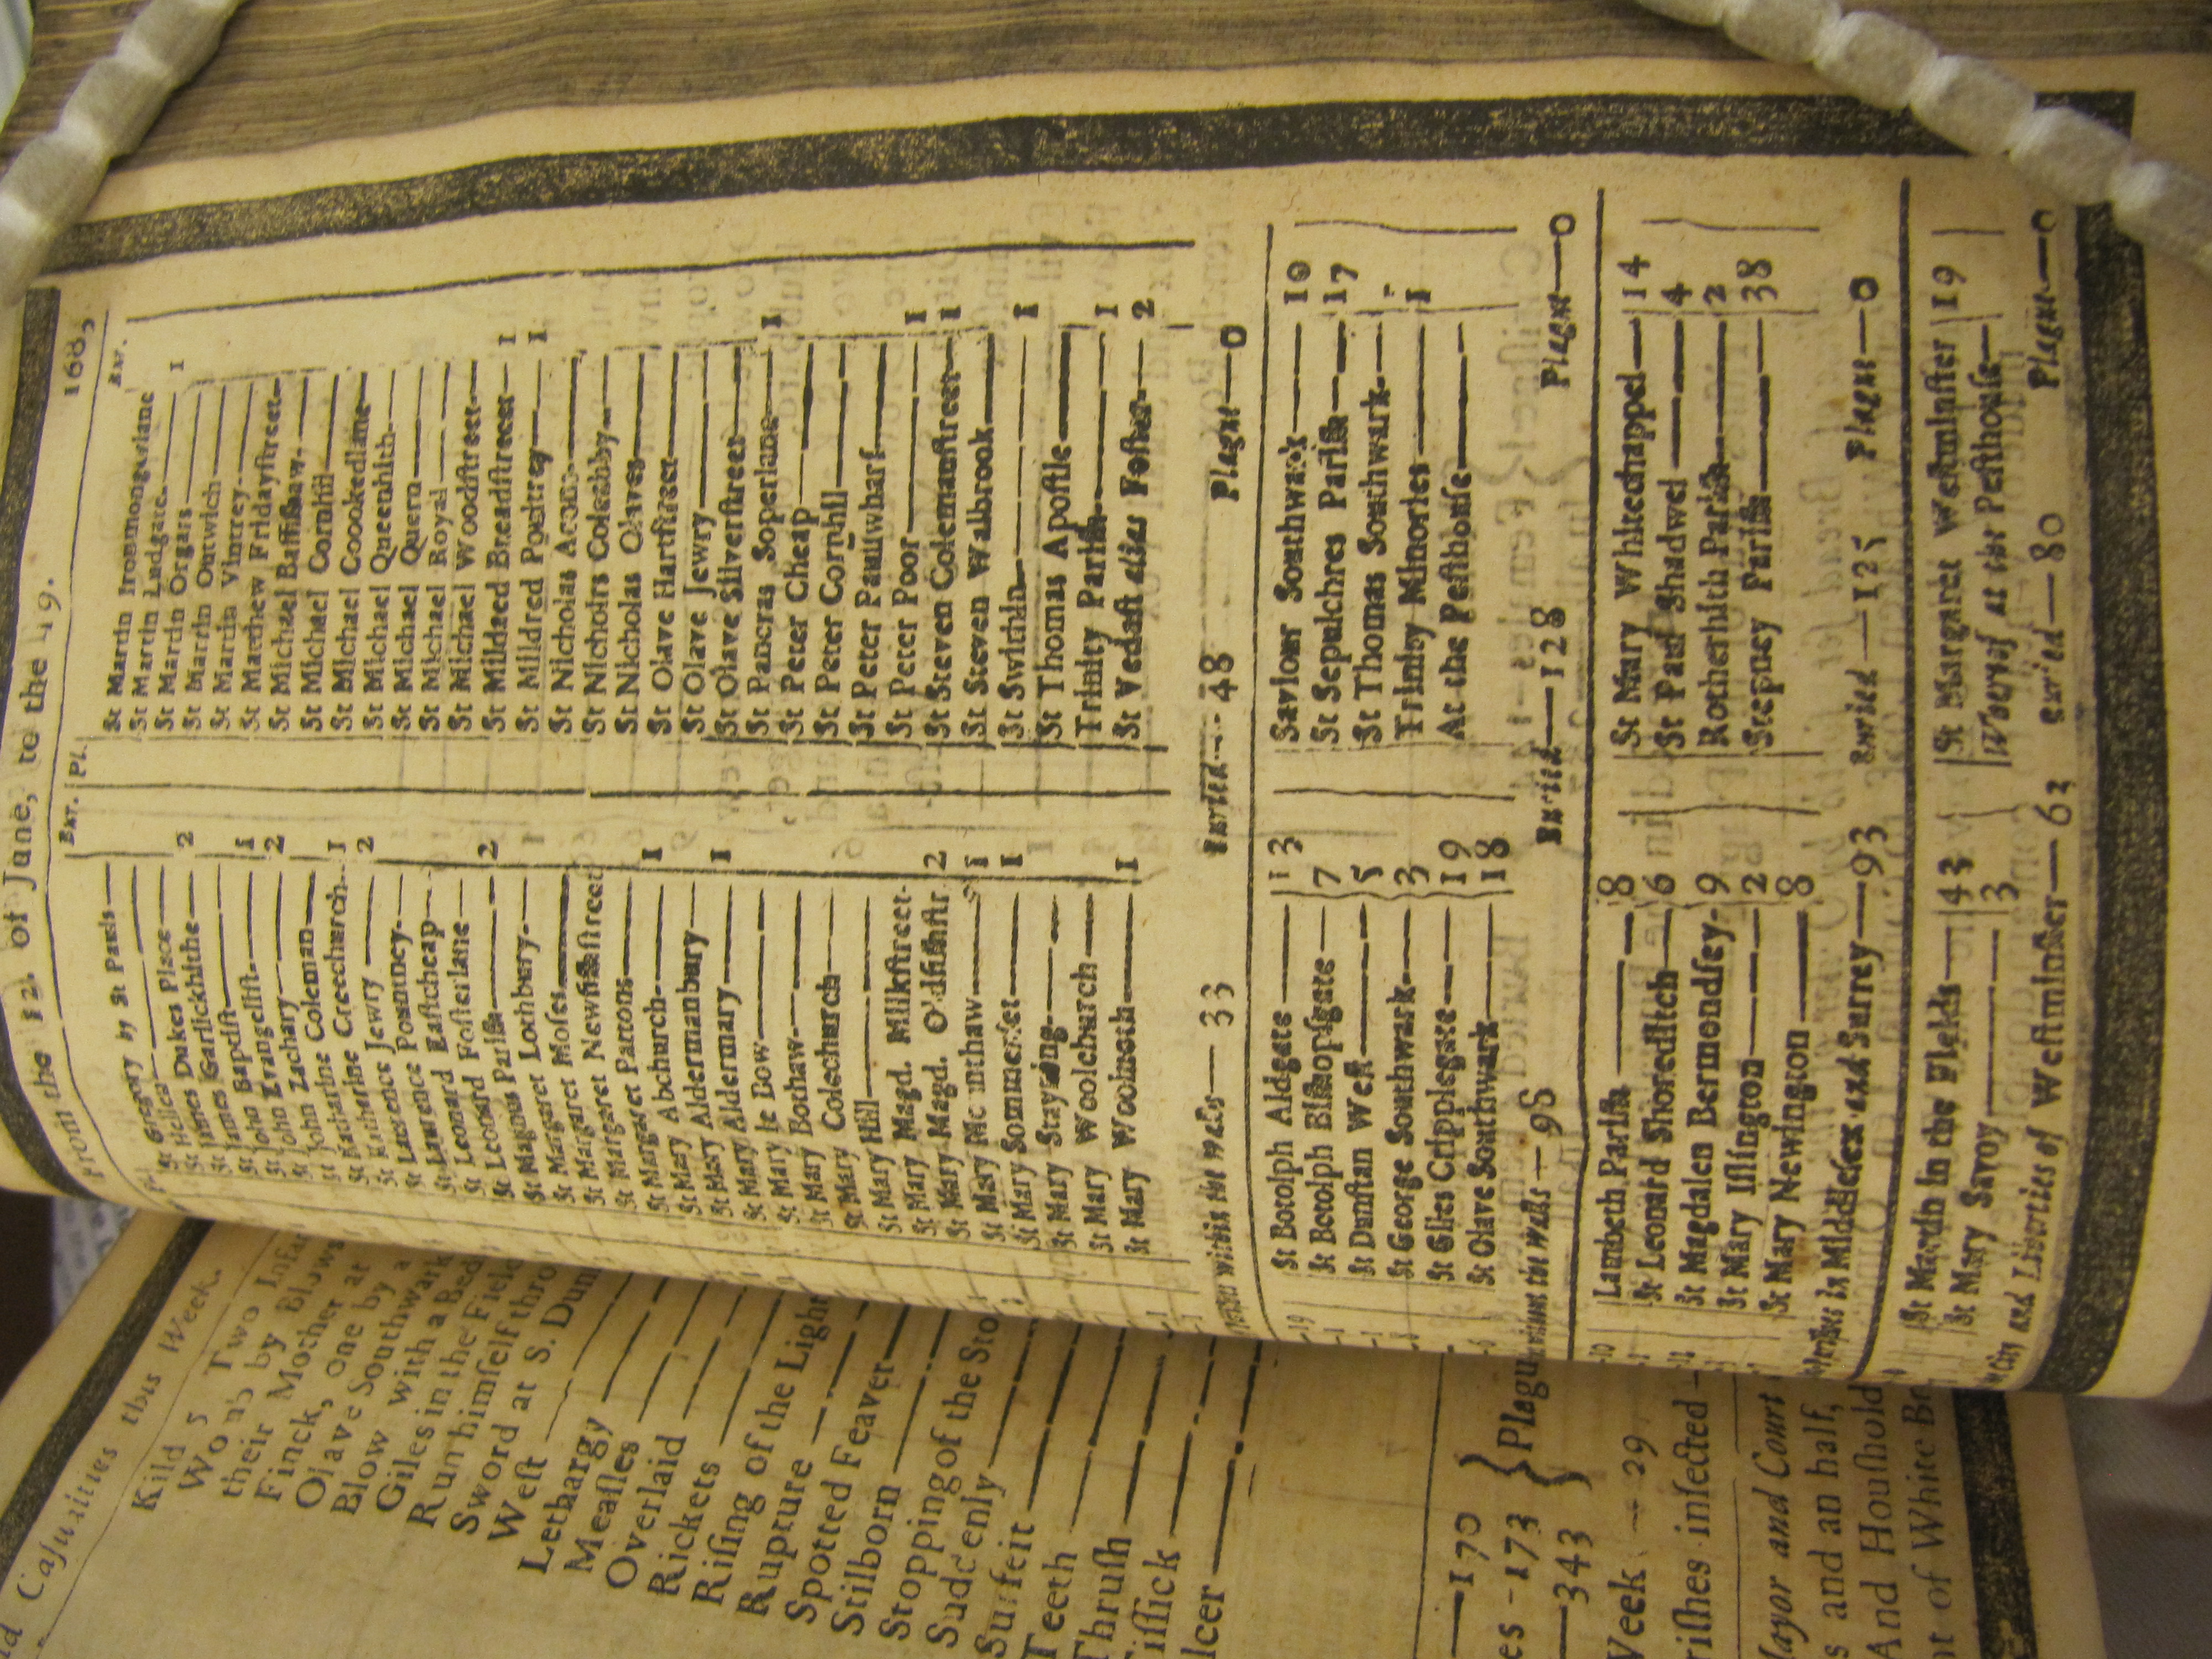 From the 12. of June, to the 19. 1683
Bur. Pl.
St Gregory by St Pauls
St Hellen
St James Dukes Place
St James Garlickhithe 2
St John Baptist
St John Evangelist 1
St John Zachary 2
St Katharine Coleman
St Katharine Creechurch 1
St Lawrence Jewry 2
St Lawrence Pountney
St Leonard Eastcheap
St Leonard Fosterlane
St Magnus Parish 2
St Margaret Lothbury
St Margaret Moses
St Margaret Newfishstreet
St Margaret Pattons
St Mary Abchurch 1
St Mary Aldermanbury
St Mary Aldermary 1
St Mary le Bow
St Mary Bothaw
St Mary Colechurch
St Mary Hill
St Mary Magd. Milkstreet
St Mary Magd. Oldfishstr 2
St Mary Mounthaw 1
St Mary Sommerset 1
St Mary Stayning
St Mary Woolchurch
St Mary Woolnoth 1
Bur.
St Martin Ironmongerlane
St Martin Ludgate 1
St Martin Orgars
St Martin Outwich
St Martin Vintrey
St Matthew Fridaystreet
St Michael Bassishaw
St Michael Cornhil
St Michael Coookedlane
St Michael Queenhith
St Michael Quern
St Michael Royal
St Michael Woodstreet
St Mildred Breadstreet 1
St Mildred Poultrey 1
St Nicholas Acons
St Nicholas Coleabby
St Nicholas Olaves
St Olave Hartstreet
St Olave Jewry
St Olave Silverstreet
St Pancras Soperlane 1
St Peter Cheap
St Peter Cornhil
St Peter Paulwharf
St Peter Poor 1
St Steven Colemanstreet 1
St Steven Walbrook
St Swithin 1
St Thomas Apostle
Trinity Parish 1
St Vedast alias Foster 2
within the walls 33 Buried 48 Plague 0
St Botolph Aldgate 13
St Botolph Bishopsgate 7
St Dunstan West 5
St George Southwark 3
St Giles Cripplegate 19
St Olave Southwark 18
Saviour Southwark 10
St Sepulchres Parish 17
St Thomas Southwark
Trinity Minories 1
At the Pesthouse
without the walls 98 Buried 128 Plague 0
Lambeth Parish 8
St Leonard Shoreditch 6
St Magdalen Bermondsey 9
St Mary Islington 2
St Mary Newington 8
St Mary Whitechappel 14
St Paul Shadwel 4
Rotherhith Parish 2
Stepney Parish 38
in Middlesex and Surrey 93 Buried 125 Plague 0
St Martin in the Fields 43
St Mary Savoy 3
St Margaret Westminster 19
Whereof at the Pesthouse
City and Liberties of Westminster 63 Buried 80 Plague 0
Casualties this Week.
Kild 5
Two Infan
their Mother at
Finck, one by a
Olave Southwark
Blow with a Bed
Giles in the Field
Run himself thro
Sword at S. Dun
West
Lethargy
Measles
Overlaid
Rickets
Rising of the Ligh
Rupture
Spotted Feaver
Stilborn
Stopping of the Sto
Suddenly
Surfeit
Teeth
Thrush
Tissick
lcer
170
es 173
343
Plagu
Week 29
rishes infected
layor and Court
s and an half,
And Houshold
nt of White Br